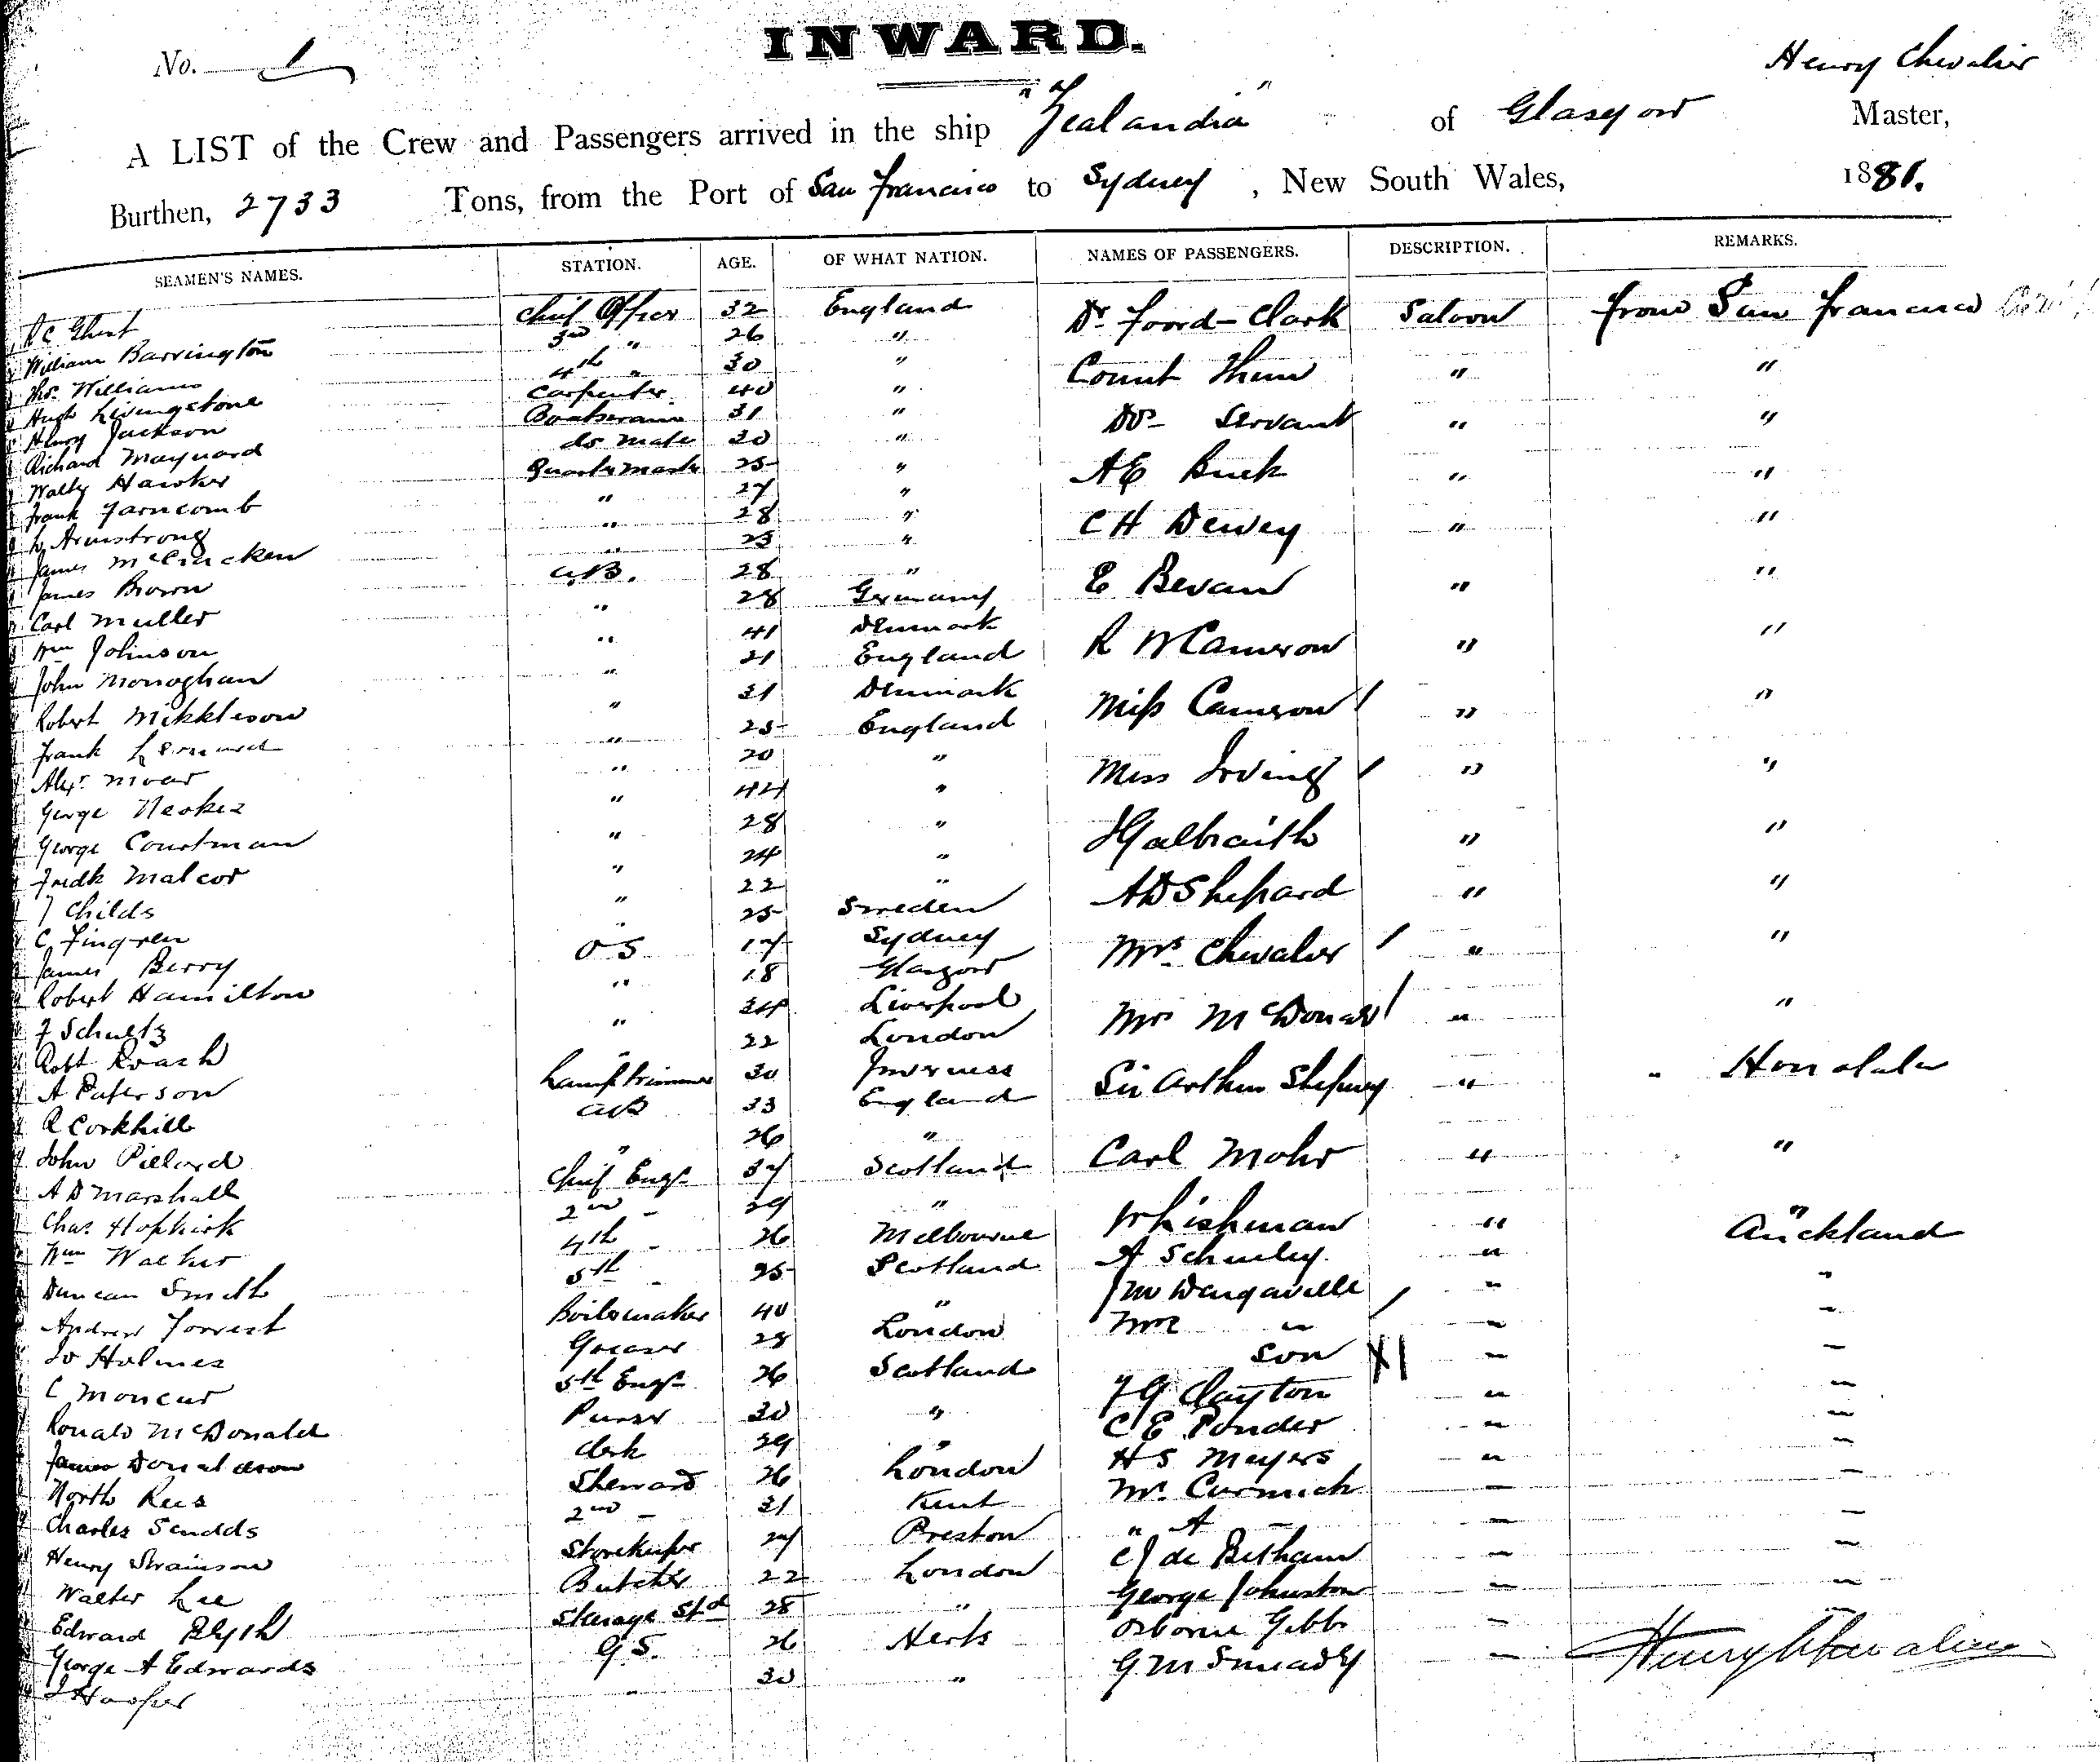 No. 1
INWARD.
Henry Chevalier
A LIST of the Crew and Passengers arrived in the ship "Zealandia" of Glasgow Master,
Burthen, 2733 Tons, from the Port of San Francisco to Sydney, New South Wales, 1881.
SEAMEN'S NAMES. STATION. AGE. OF WHAT NATION. NAMES OF PASSENGERS. DESCRIPTION. REMARKS.
Chief Officer 32 England
William Barrington 3rd " 26 "
Thos. Williams 4th " 30 "
Hugh Livingstone Carpenter 40 "
Henry Jackson Boatswain 31 "
Richard Maynard do mate 30 "
Hawker Quarter Master 25 "
Frank Yarncomb " 27 "
Armstrong " 28 "
James McCracken " 23 "
James Brown A.B. 28 "
Carl Muller " 28 Germany
Wm Johnson " 41 Denmark
John Monoghan " 21 England
Robert Mikkleson " 31 Denmark
Frank Leonard " 25 England
Alexr. Moar " 20 "
George " 44 "
George Courtman " 28 "
Fredk Malcor " 24 "
J Childs " 22 "
C Fingren " 25 Sweden
James Berry OS 17 Sydney
Robert Hamilton " 18 Glasgow
F Schultz " 24 Liverpool
Robt Roach " 22 London
A Paterson Lamptrimmer 30 Inverness
R Corkhill AB 33 England
John Pillord " 26 "
A D Marshall Chief Engr 37 Scotland
Chas. Hopkirk 2nd - 29 "
Wm Walker 4th - 26 Melbourne
Duncan Smith 5th - 25 Scotland
Andrew Forrest Boilermaker 40 "
Jo Holmes Greaser 28 London
C Moncur 5th Engr 26 Scotland
Ronald McDonald Purser 30 "
James Donaldson clerk 29 "
North Rees Steward 26 London
Charles Scudds 2nd - 31 Kent
Henry Swainson Storekeeper 27 Preston
Walter Lee Butcher 22 London
Edward Blyth Steerage Std 28 "
George A Edwards G.S. 26 Herts
J Hooper " 30 "
Dr Foord-Clark Saloon from San Francisco
Count Thun " "
Do- Servant " "
A E Buck " "
C H Dewey " "
E Bevan " "
R W Cameron " "
Miss Cameron " "
Miss Irving " "
J Galbraith " "
A D Shepard " "
Mrs Chevalier " "
Mrs McDonald " "
Sir Arthur " " Honolulu
Carl Mohr " "
Lishman " " Auckland
A " "
J M Dargaville " "
Mrs " " "
Son " "
J G Clayton " "
C E Ponder " "
H S Meyers " "
Mr. Cormick " "
" A - " "
C J de Betham " "
George Johnston " "
Osborne Gibbs " "
G M " "
Henry Chevalier